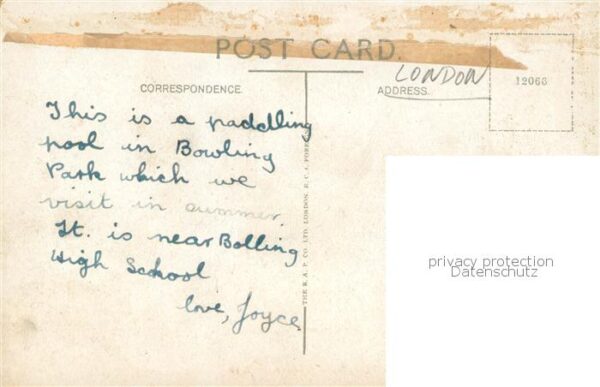 POST CARD.
LONDON
CORRESPONDENCE.
ADDRESS.
12066
This is a paddling
pool in Bowling
Park which we
visit in summer.
It. is near Bolling
High School
love, Joyce
THE R. A. P. CO. LTD. LONDON. E.C.4.
privacy protection
Datenschutz